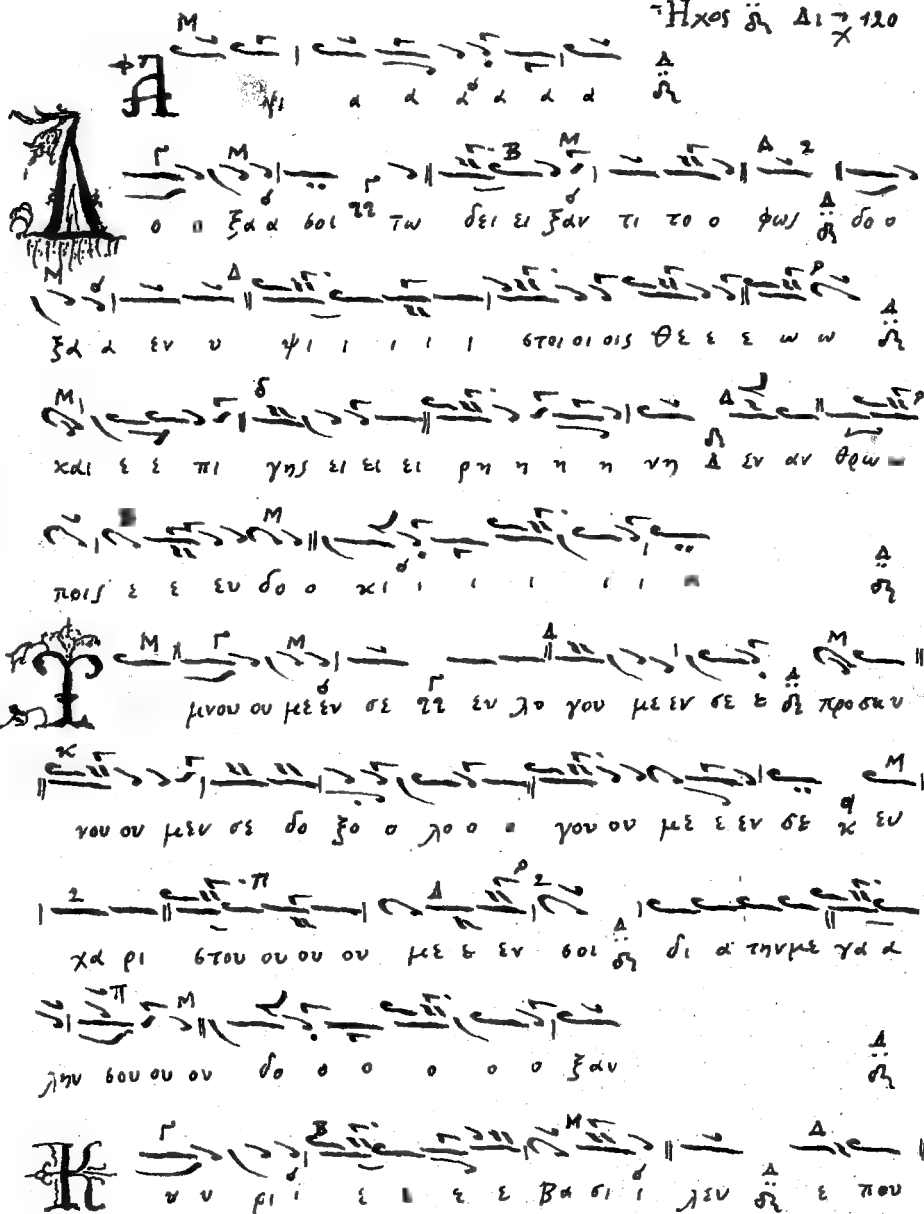 Ἦχος Δι 120
ψι α α α α α α
ο ο ξα α σοι τω δει ει ξαν τι το ο φως δο ο
ξα α εν υ ψι ι ι ι ι στοι οι οις θε ε ε ω ω
και ε ε πι γης ει ει ει ρη η η η νη εν αν θρω
ποις ε ε ευ δο ο κι ι ι ι ι ι
μνου ου με εν σε εν λο γου με εν σε ε προσκυ
νου ου μεν σε δο ξο ο λο ο γου ου με ε εν σε ευ
χα ρι στου ου ου ου με ε εν σοι δι α την με γα α
λην σου ου ου δο ο ο ο ο ο ξαν
Κ υ υ ρι ι ε ε ε βα σι ι λευ ε που